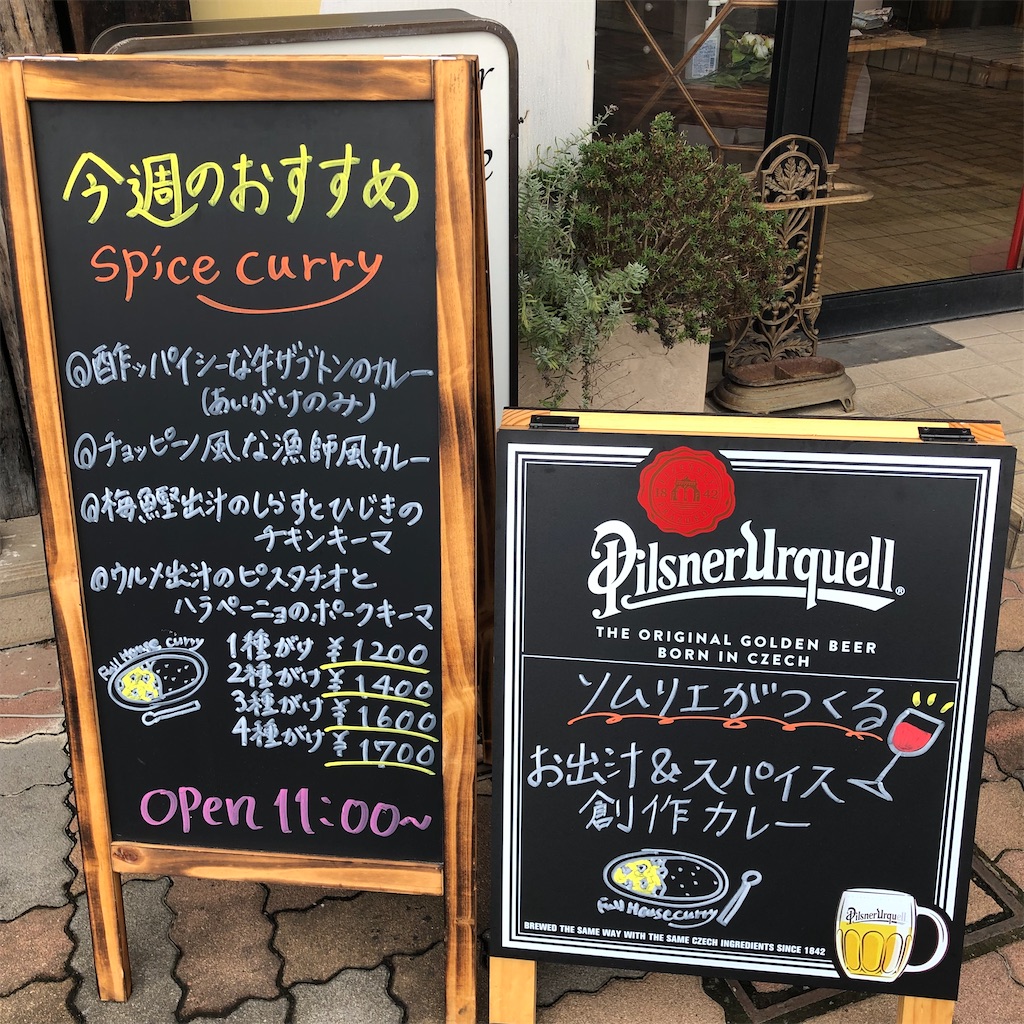 今週のおすすめ
spice curry
@酢ッパイシーな牛ザブトンのカレー
(あいがけのみ)
@チョッピーノ風な漁師風カレー
@梅鰹出汁のしらすとひじきの
チキンキーマ
@ウルメ出汁のピスタチオと
ハラペーニョのポークキーマ
Full House curry
1種がけ ¥1200
2種がけ ¥1400
3種がけ ¥1600
4種がけ ¥1700
open 11:00~
Pilsner Urquell®
THE ORIGINAL GOLDEN BEER
BORN IN CZECH
ソムリエがつくる
お出汁&スパイス
創作カレー
Full House curry
BREWED THE SAME WAY WITH THE SAME CZECH INGREDIENTS SINCE 1842
Pilsner Urquell